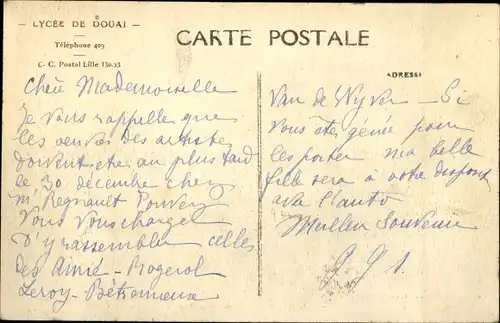 LYCÉE DE DOUAI
Téléphone 409
C. C. Postal Lille 130.23
CARTE POSTALE
ADRESSE
Chère Mademoiselle
Je vous rappelle que
les envois des artistes
doivent être au plus tard
le 30 décembre chez
M. Regnault
Vous vous chargez
d'y rassembler celles
des Aimé - Rogerol
Leroy -
Van de Wyver - Si
vous êtes gênée pour
les porter ma belle
fille sera à votre disposit
avec l'auto
Meilleur souvenir